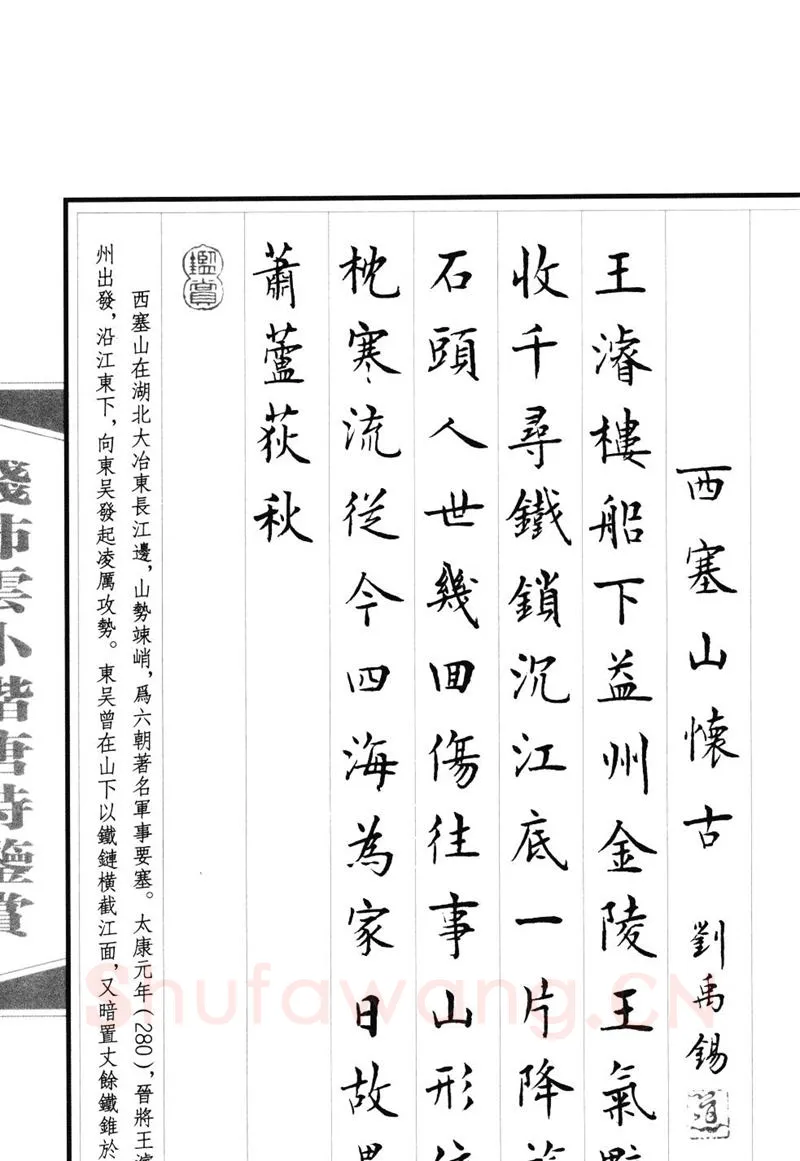 西塞山懷古 劉禹錫
王濬樓船下益州金陵王氣
收千尋鐵鎖沉江底一片降
石頭人世幾囬傷往事山形
枕寒流從今四海為家日故
蕭蘆荻秋
鑑賞
西塞山在湖北大冶東長江邊，山勢竦峭，爲六朝著名軍事要塞。太康元年(280)，晉將王濬
州出發，沿江東下，向東吴發起凌厲攻勢。東吴曾在山下以鐵鏈横截江面，又暗置丈餘鐵錐於
錢沛雲小楷唐詩鑒賞
Shufawang.CN